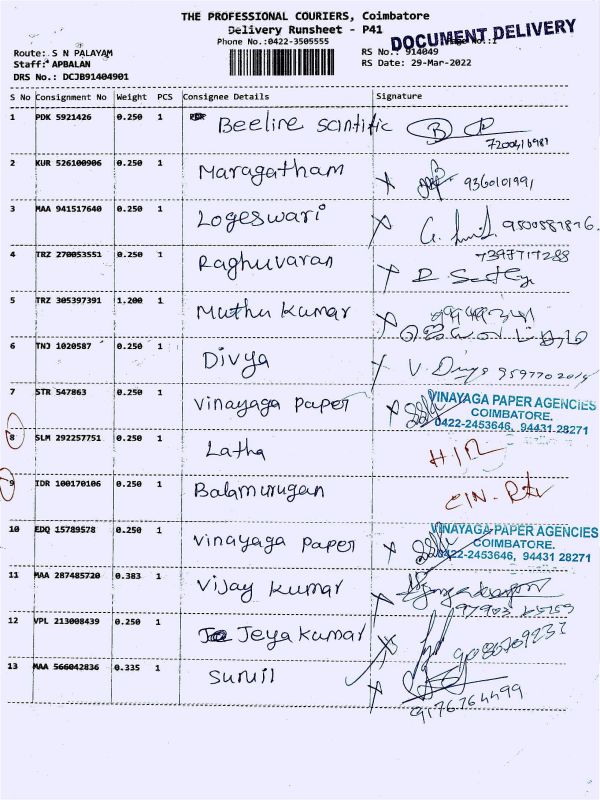 THE PROFESSIONAL COURIERS, Coimbatore
Delivery Runsheet - P41
Phone No.:0422-3505555
DOCUMENT DELIVERY
Route: S N PALAYAM
Staff: APBALAN
DRS No.: DCJB91404901
RS No.: 914049
RS Date: 29-Mar-2022
S No Consignment No Weight PCS Consignee Details Signature
1 PDK 5921426 0.250 1 Beeline scintific
2 KUR 526100906 0.250 1 Maragatham 9360101991
3 MAA 941517640 0.250 1 Logeswari
4 TRZ 270053551 0.250 1 Raghuvaran
5 TRZ 305397391 1.200 1 Muthu kumar
6 TNJ 1020587 0.250 1 Divya
7 STR 547863 0.250 1 vinayaga paper
VINAYAGA PAPER AGENCIES
COIMBATORE.
0422-2453646, 94431 28271
8 SLM 292257751 0.250 1 Latha
9 IDR 100170106 0.250 1 Balamurugan
10 EDQ 15789578 0.250 1 vinayaga paper
VINAYAGA PAPER AGENCIES
COIMBATORE.
0422-2453646, 94431 28271
11 MAA 287485720 0.383 1 Vijay kumar
12 VPL 213008439 0.250 1 Jeyakumar
13 MAA 566042836 0.335 1 Sunil
9176764499